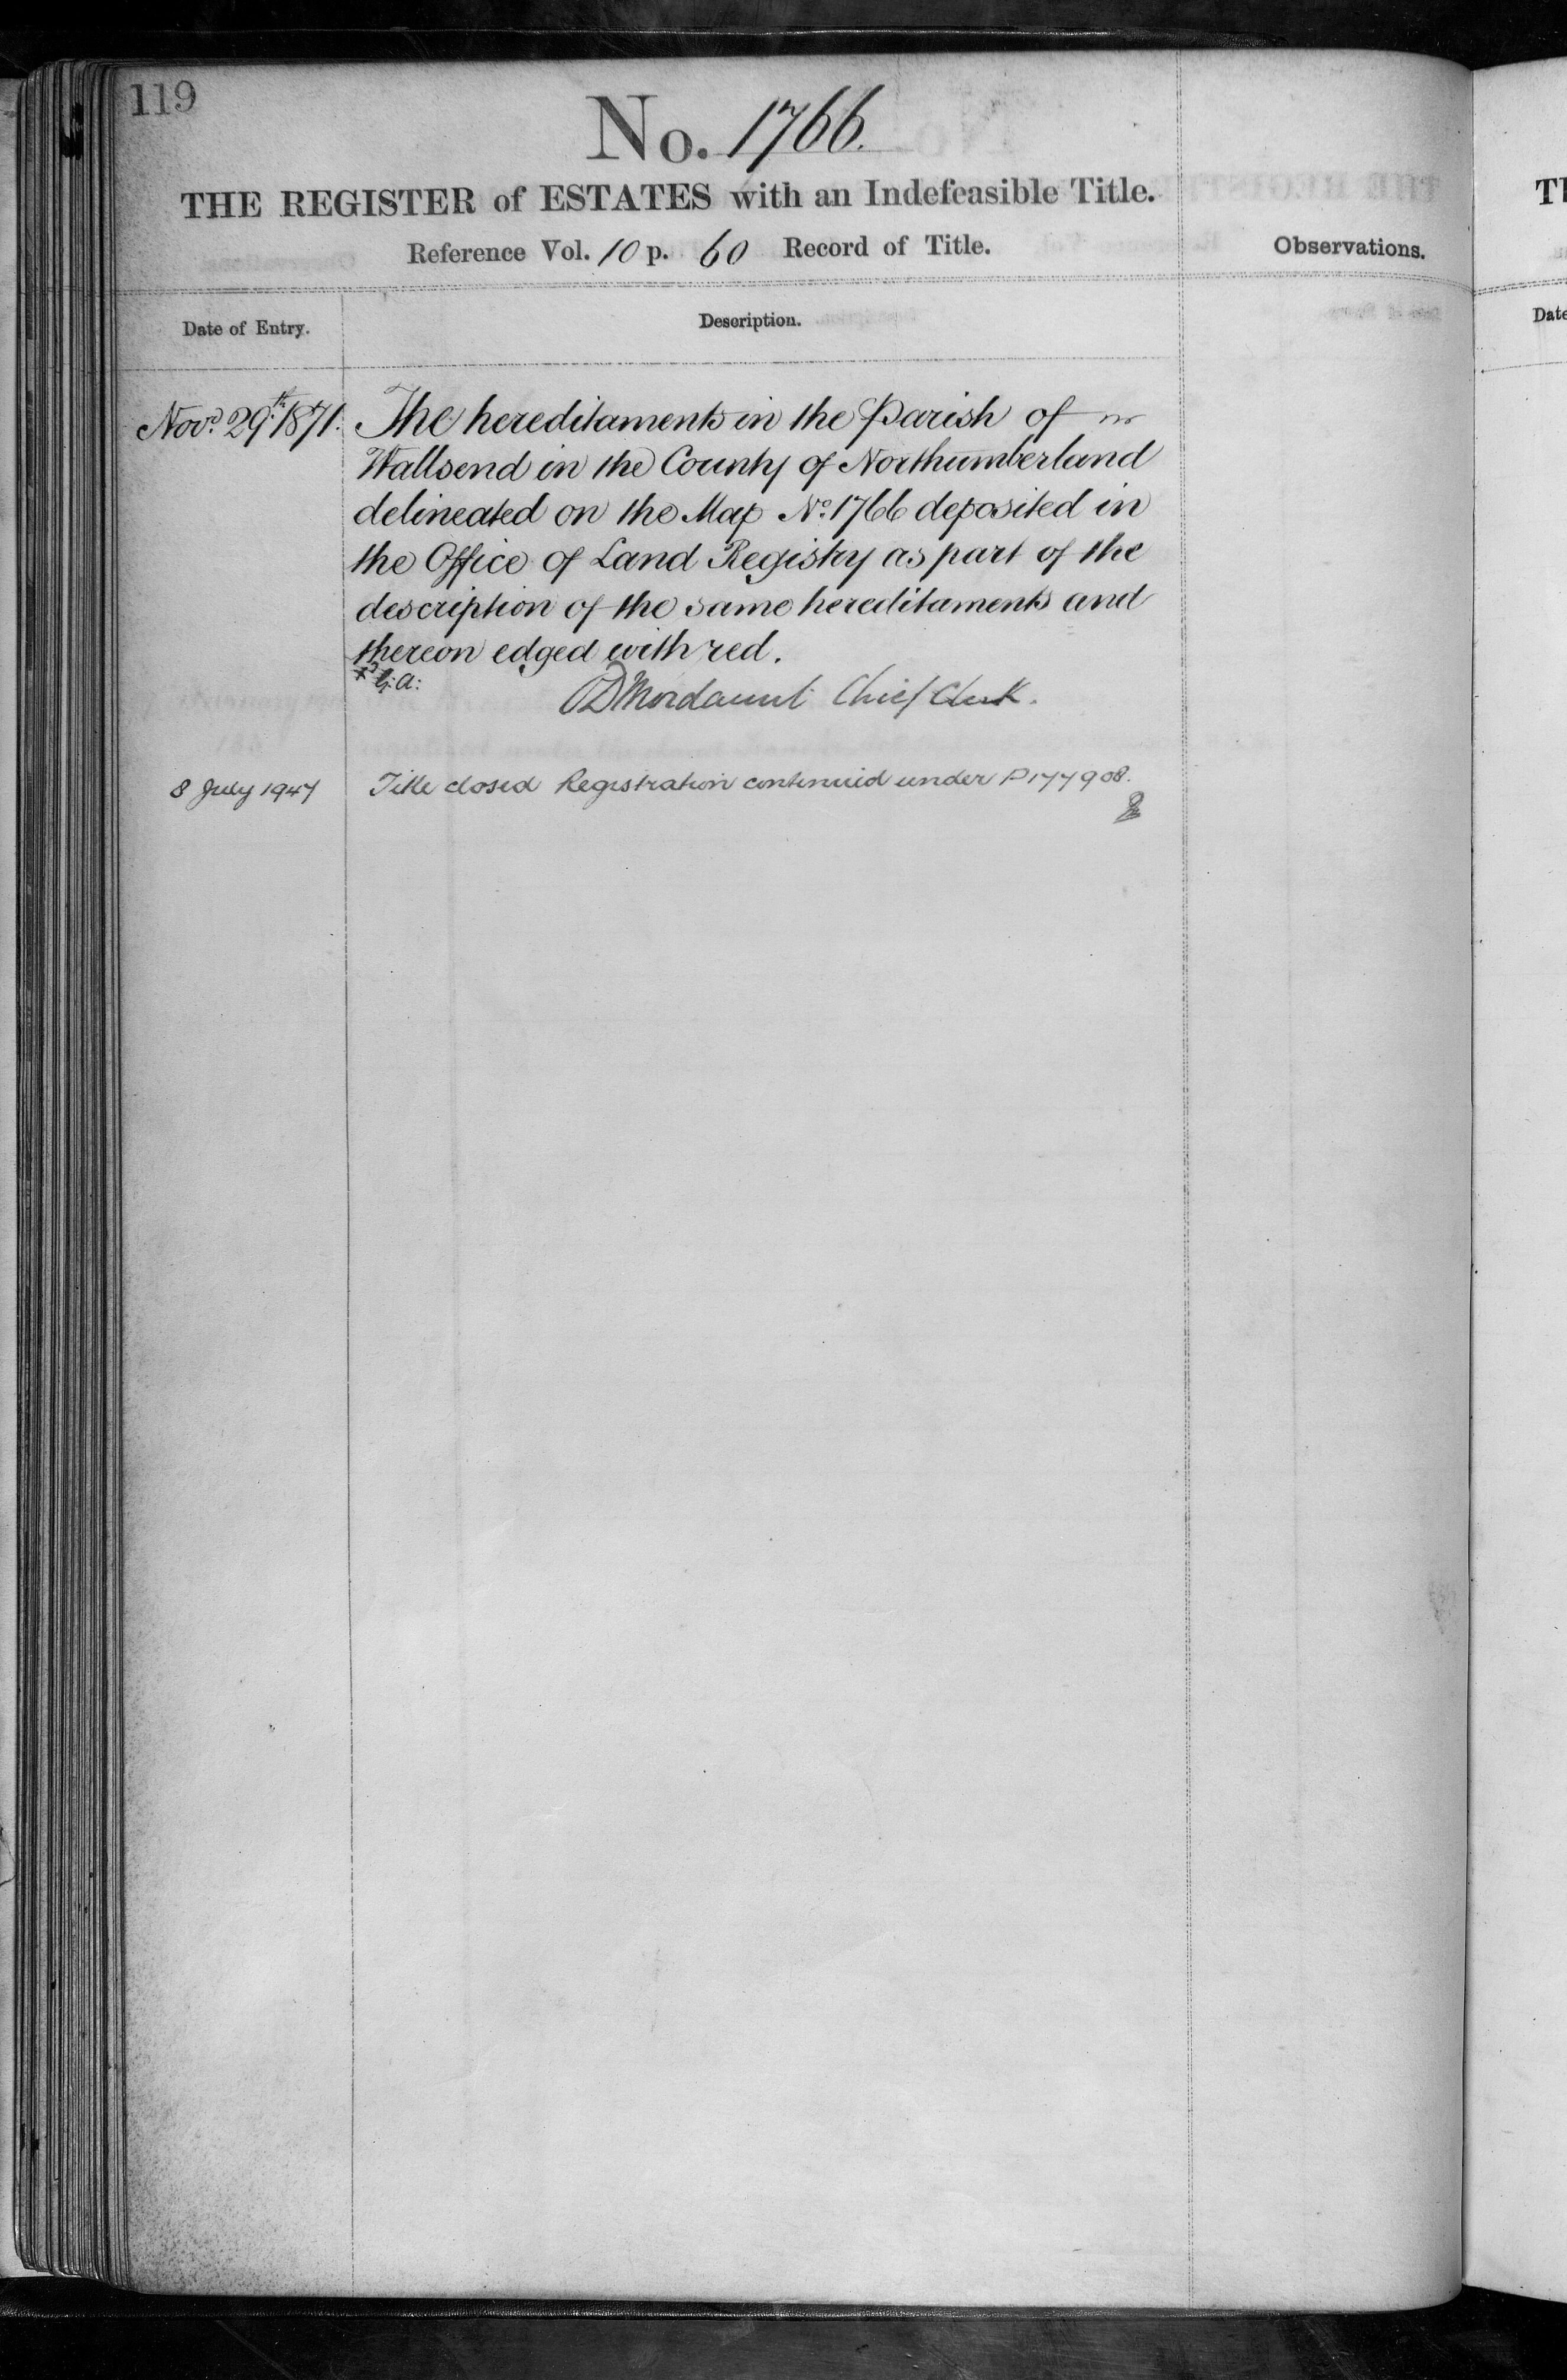 119
No. 1766.
THE REGISTER of ESTATES with an Indefeasible Title.
Reference Vol. 10 p. 60 Record of Title.
Observations.
Date of Entry.
Description.
Novr. 29th. 1871.
The hereditaments in the Parish of
Wallsend in the County of Northumberland
delineated on the Map No. 1766 deposited in
the Office of Land Registry as part of the
description of the same hereditaments and
thereon edged with red.
G: A:
Mordaunt Chief Clerk.
8 July 1947
Title closed Registration continued under P177908.